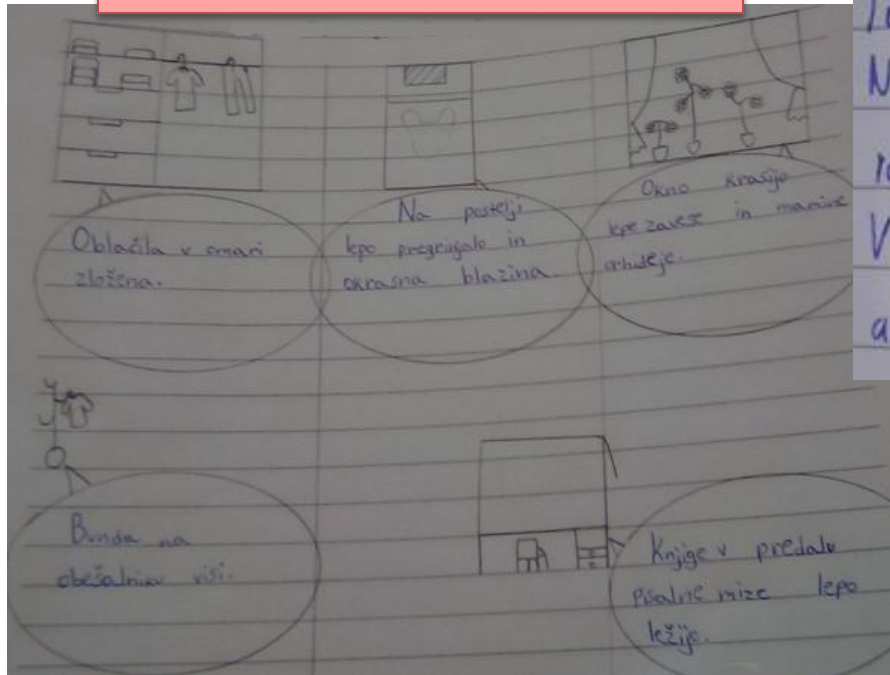 Oblačila v omari
zložena.
Na postelji
lepo pregrinjalo in
okrasna blazina.
Okno krasijo
lepe zavese in mamine
orhideje.
Bunda na
obešalniku visi.
Knjige v predalu
pisalne mize lepo
ležijo.